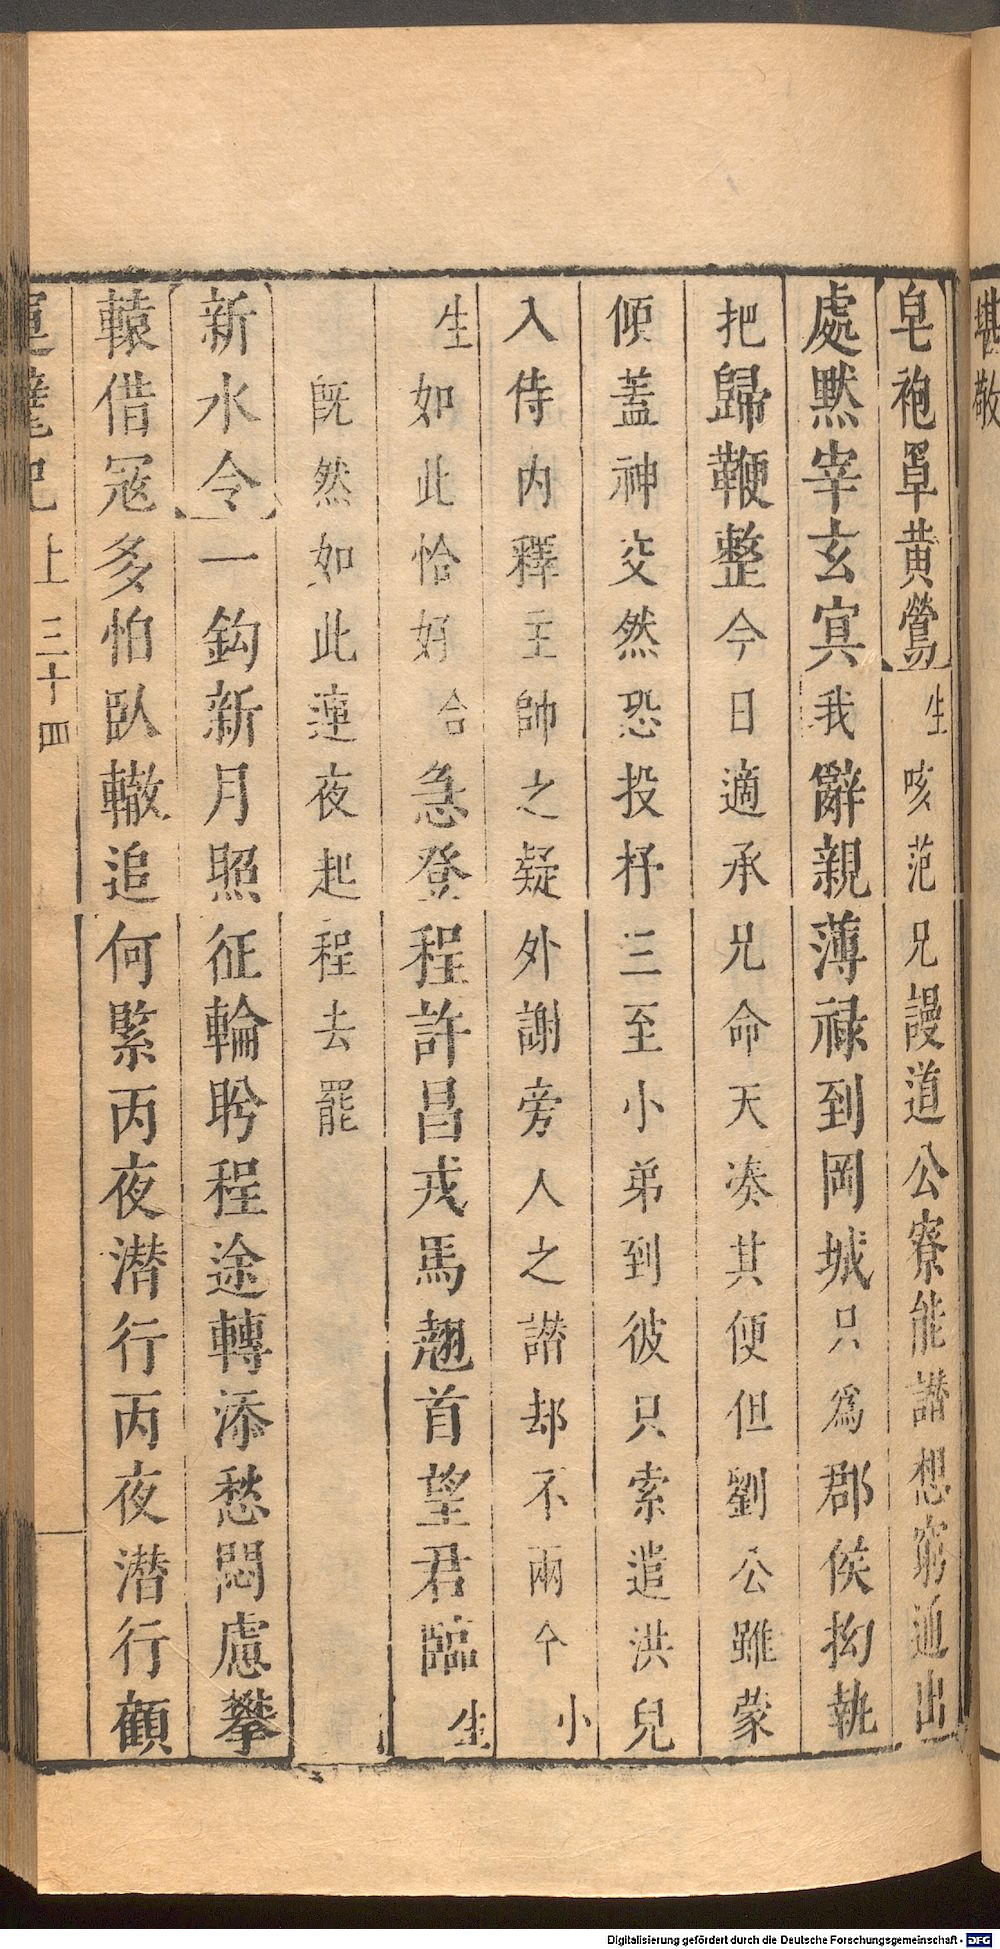 堪敬
皂袍罩黃鶯生咳范兄謾道公寮能譖想窮通出
處默宰玄冥我辭親薄祿到岡城只爲郡侯拘執
把歸鞭整今日適承兄命天凑其便但劉公雖蒙
傾蓋神交然恐投杼三至小弟到彼只索遣洪兒
入侍內釋主帥之疑外謝旁人之譖却不兩个小
生如此恰好合急登程許昌戎馬翹首望君臨生
旣然如此連夜起程去罷
新水令一鈎新月照征輪盻程途轉添愁悶慮攀
轅借冦多怕臥轍追何緊丙夜潜行丙夜潜行顧
運甓記 上 三十四
Digitalisierung gefördert durch die Deutsche Forschungsgemeinschaft - DFG